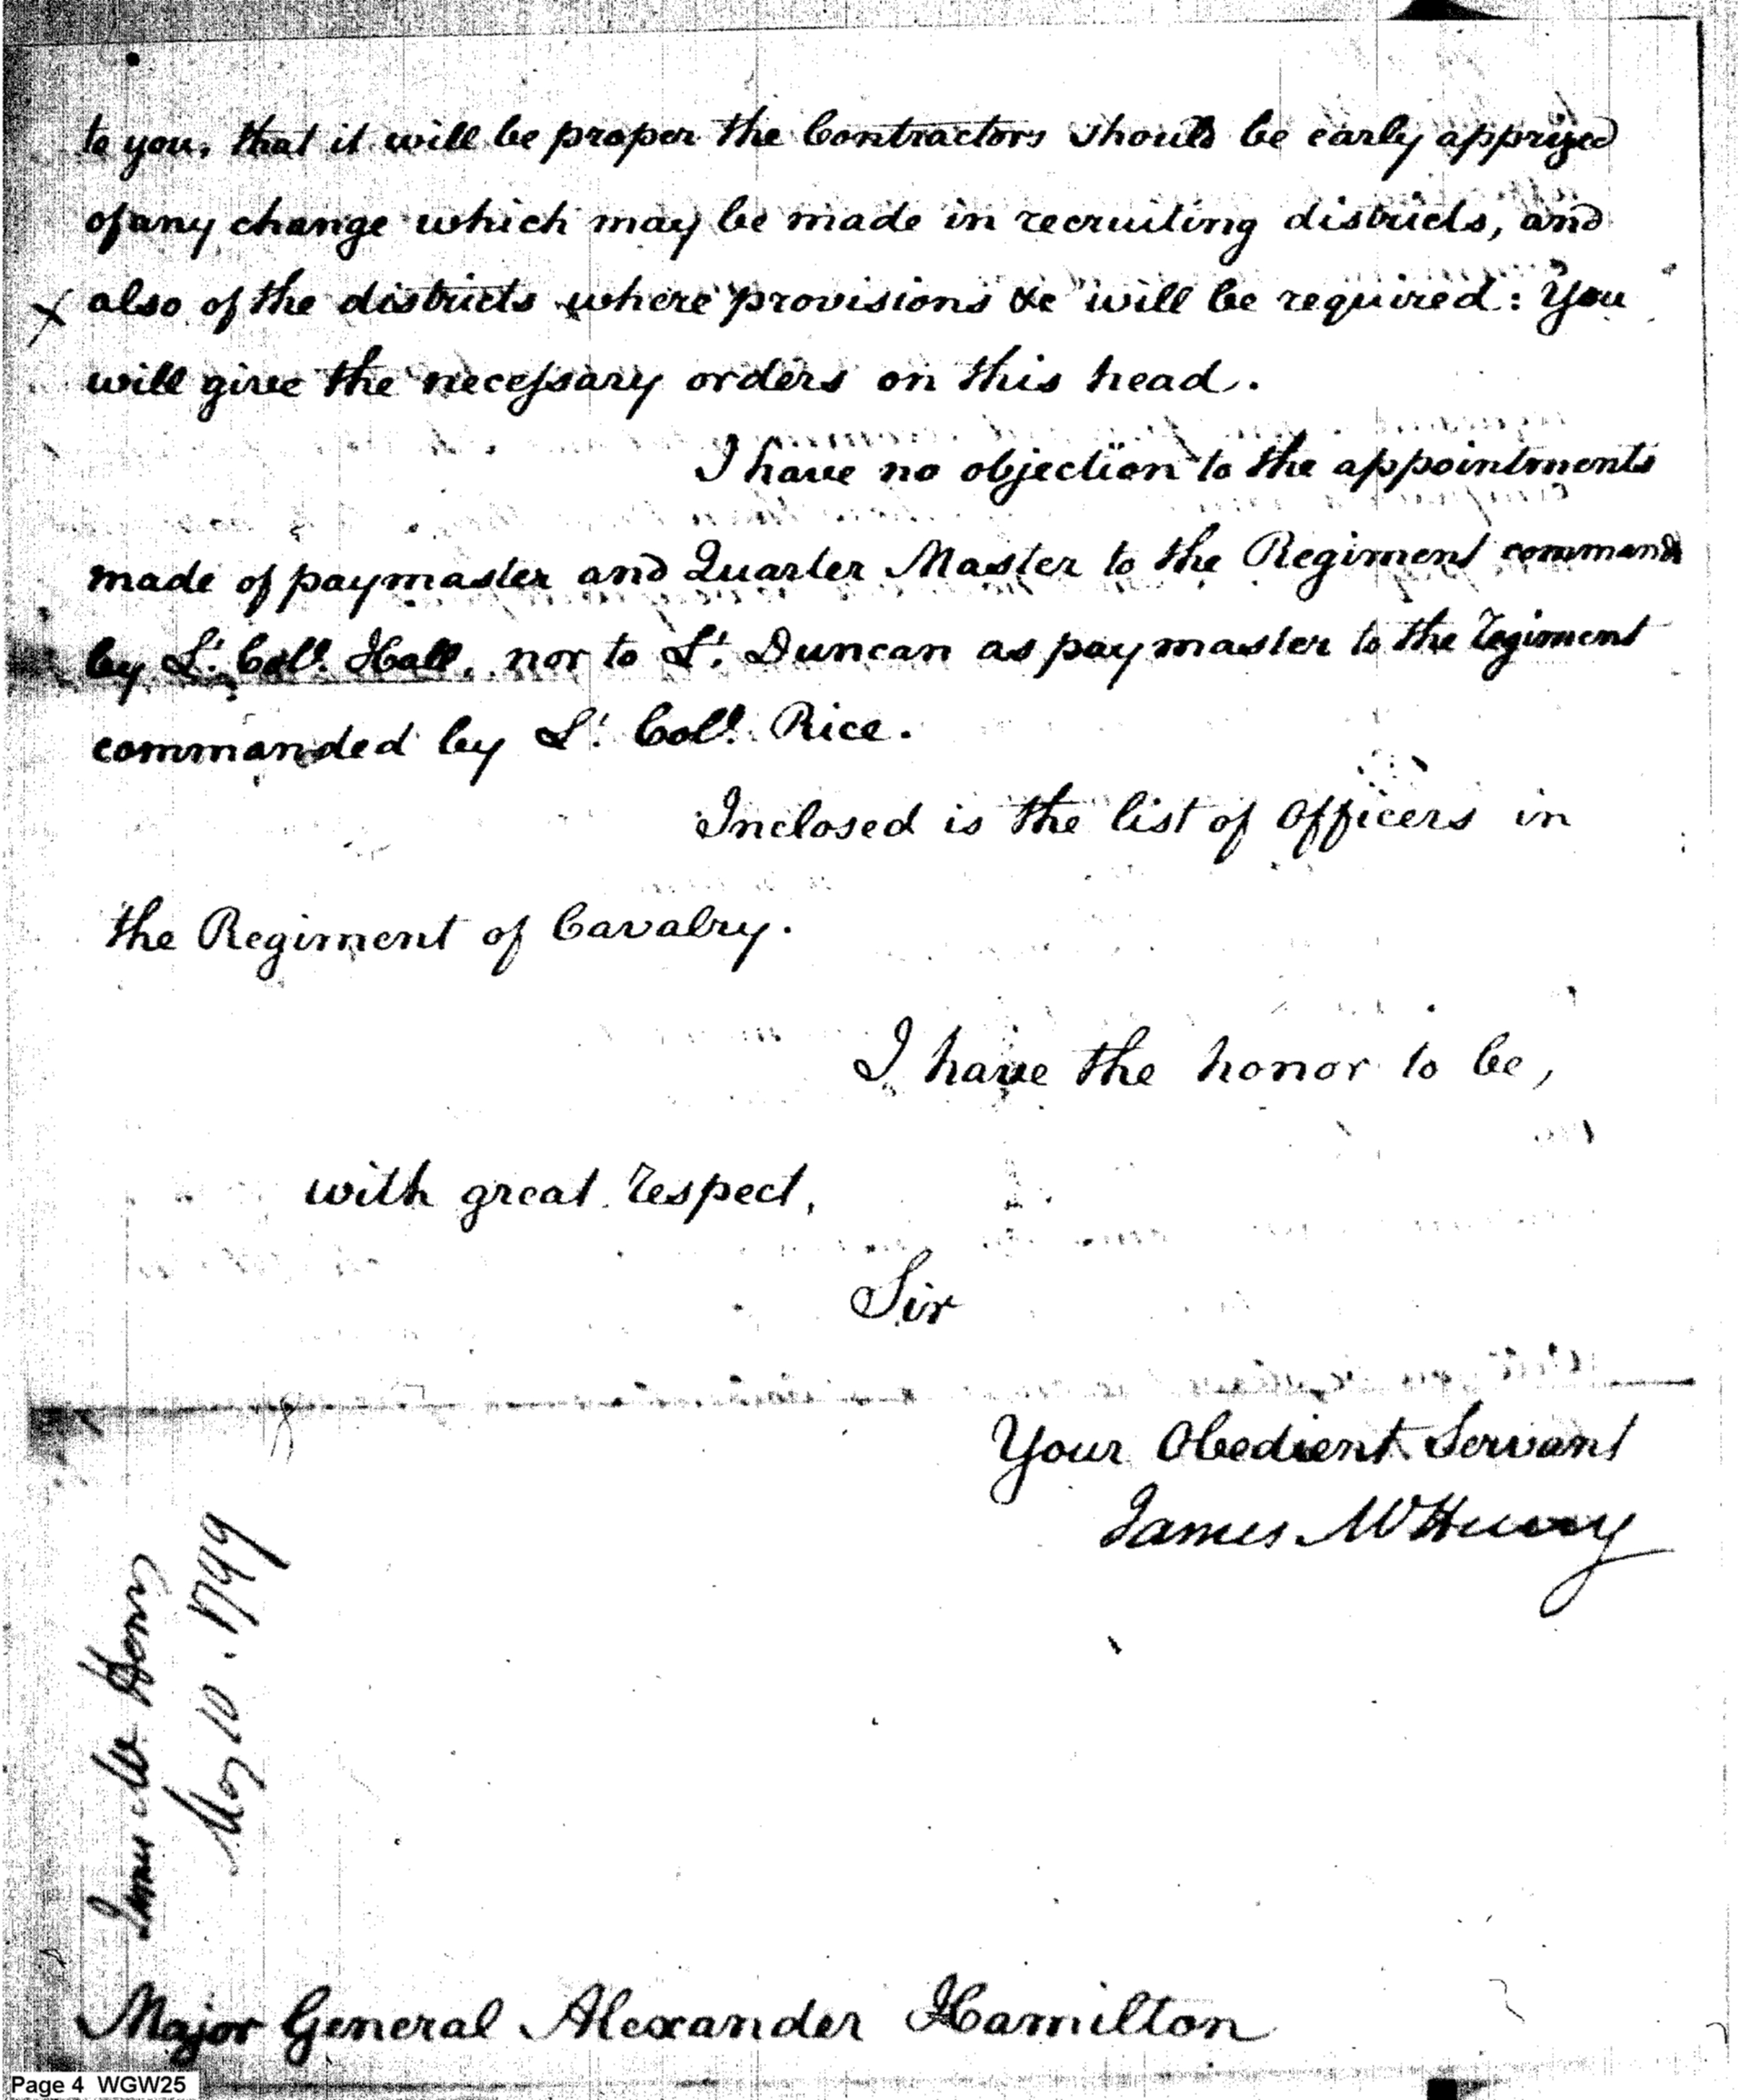 to you, that it will be proper the Contractors should be early apprized
of any change which may be made in recruiting districts, and
x also of the districts where provisions &c will be required: You
will give the necessary orders on this head.
I have no objection to the appointments
made of paymaster and Quarter Master to the Regiment command
by Lt. Coll. Hall, nor to Lt. Duncan as paymaster to the regiment
commanded by Lt. Coll. Rice.
Inclosed is the list of Officers in
the Regiment of Cavalry.
I have the honor to be,
with great respect,
Sir
Your Obedient Servant
James McHenry
James Mc Henry
May 10. 1799
Major General Alexander Hamilton
Page 4 WGW25